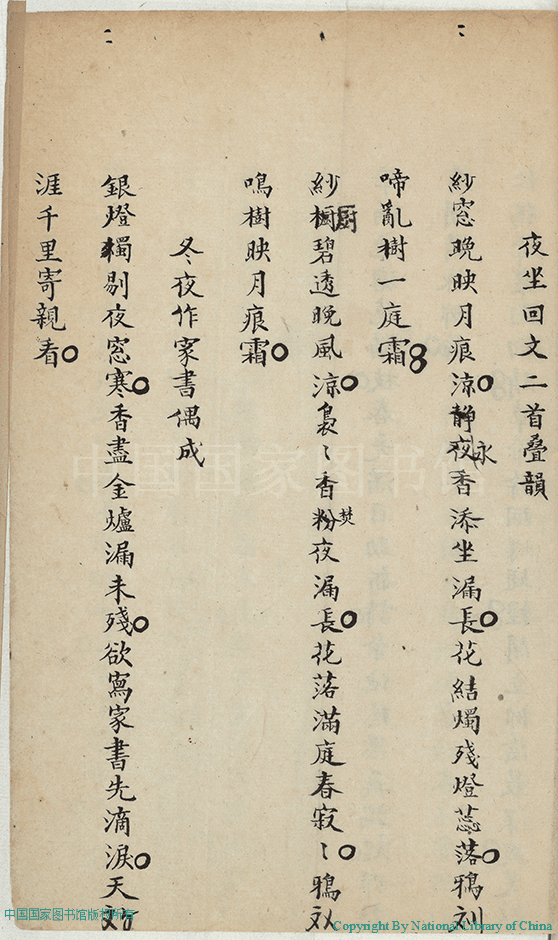 夜坐回文二首疊韻
紗窓晚映月痕涼靜夜永香添坐漏長花結燭殘燈蕊落鴉
啼亂樹一庭霜
紗橱厨碧透晚風涼裊〻香粉焚夜漏長花落滿庭春寂〻鴉
鳴樹映月痕霜
冬夜作家書偶成
銀燈獨剔夜窓寒香盡金爐漏未殘欲寫家書先滴淚天
涯千里寄親看
中国国家图书馆
中国国家图书馆版权所有
Copyright By National Library of China